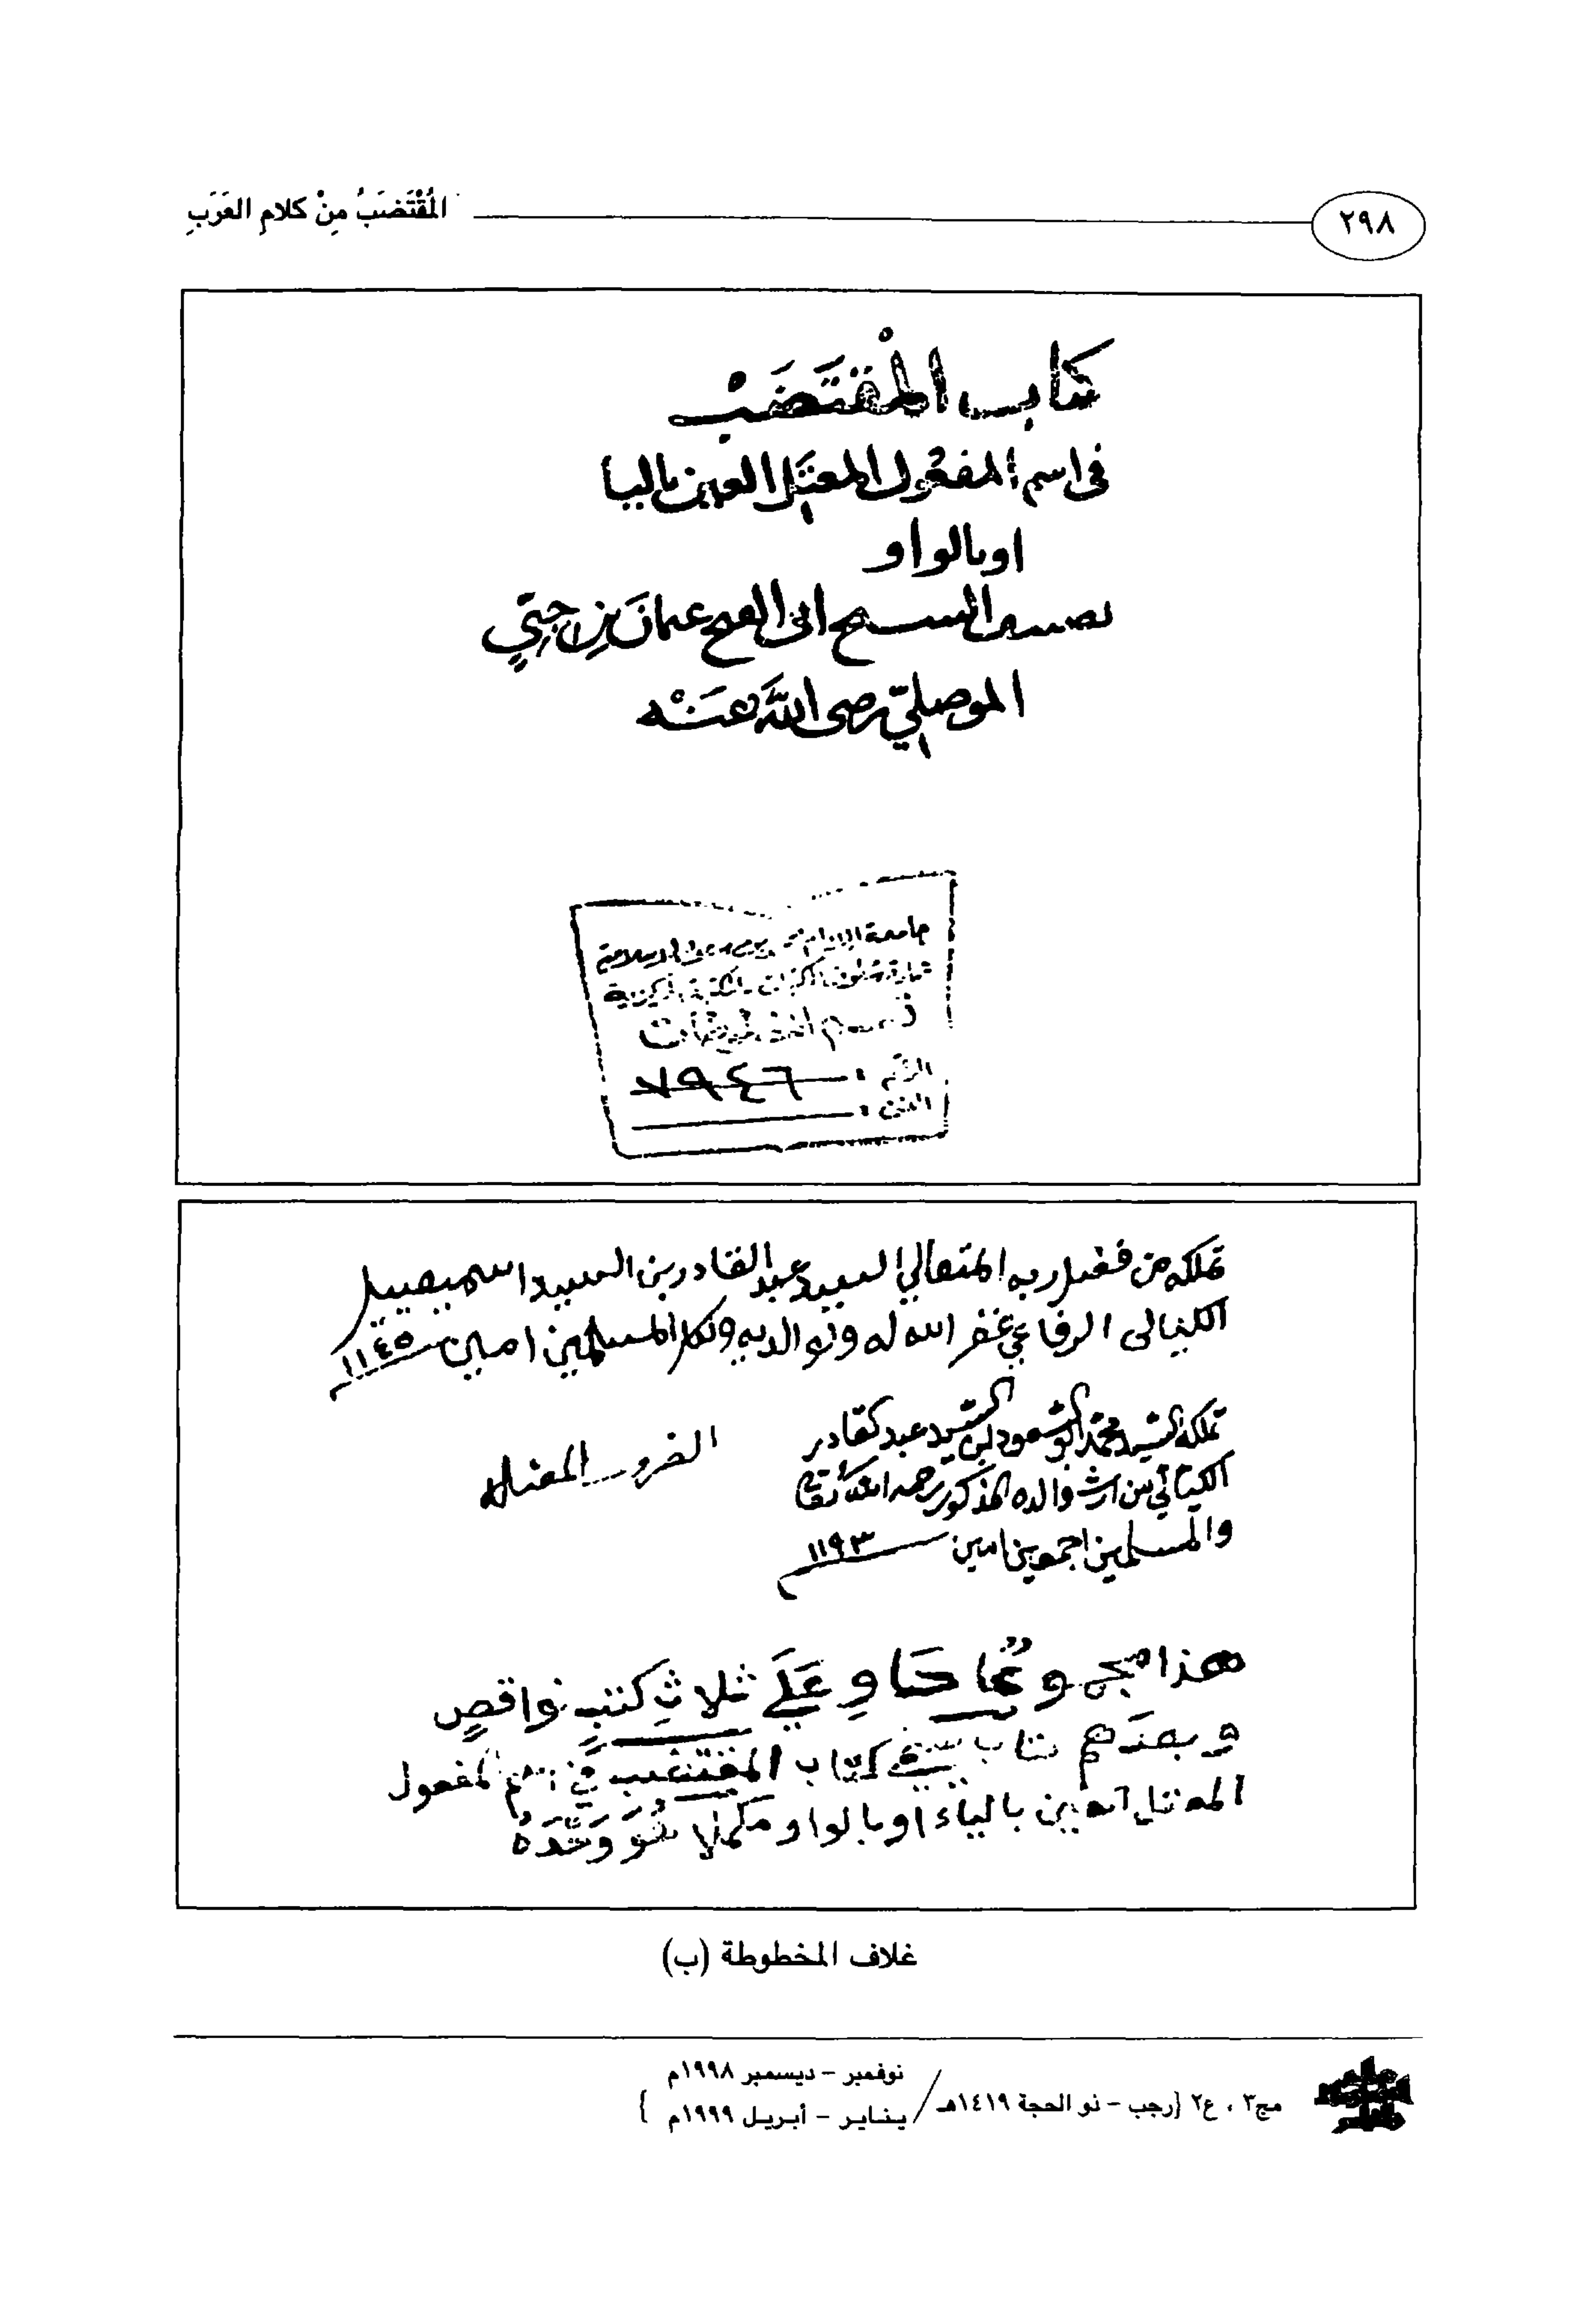 ٢٩٨
المُقْتَضَبُ مِنْ كلامِ العَرَبِ
كتاب المُقْتَضَبْ
فى اسم المفعُول المعتَلِ العين باليا
او بالواو
تصنيف الشيخ ابى الفتح عثمانَ بنِ جِنّيٍ
الموصليّ رضى اللَّه عَنْه
جامعة الإمام محمد بن سعود الإسلامية
عمادة شؤون المكتبات - المكتبة المركزية
قسم المخطوطات
الرقم : ٧٩٤٦
الفن :
تملكه من فضل ربه المتعالي السيد عبد القادر بن السيد اسمعيل
الكيالى الرفاعي غفر الله له ولوالديه ولكل المسلمين امين ١١٤٥
تملكه السيد محمد ابو السعود ابن السيد عبد القادر
الكيالي من ارث والده المذكور رحمه الله تعالى
والمسلمين اجمعين امين ١١٩٣
هذا مجموعٌ حَاوِ عَلَى ثلاثِ كتبٍ نواقصٍ
وبعدَهم كتاب المقتضب في اسم المفعول
المعتل العين بالياء او بالواو مكملا هُوَ وَحْدَهُ
غلاف المخطوطة (ب)
مج٣ ، ع٢ {رجب - ذو الحجة ١٤١٩هـ /
نوفمبر - ديسمبر ١٩٩٨م
يناير - أبريل ١٩٩٩م }